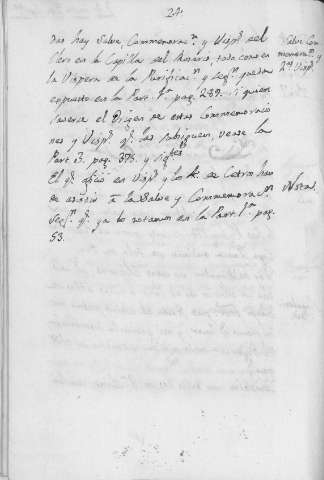 24.
das hay Salve, Commemoraz.n y Visp.s del
Clero en la Capilla del Rosario, todo como en
la Vispera de la Purificaz.n y seg.n queda
expuesto en la Part. 1.a pag. 289. Quien
el Origen de estas Commemoracio
nes y Visp.s q.e las subsiguen, vease la
Part. 3.a pag. 373. y sig.tes
El q.e ofició en Visp.s y los de Cetro han
de asistir à la Salve y Commemoraz.n
seg.n q.e ya lo notamos en la Part. 1.a pag.
53.
Salve Com
memoraz.n
y Visp.s
Nota.